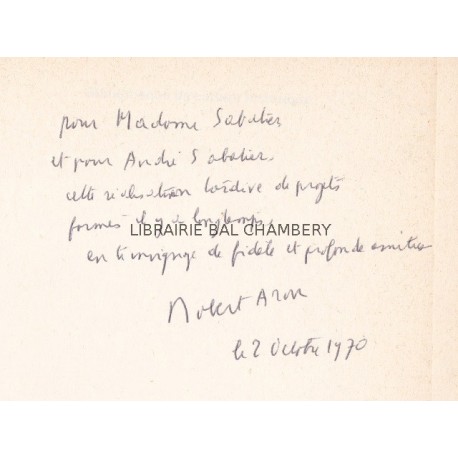 pour Madame Sabatier
et pour André Sabatier,
cette réalisation tardive de projets
formés il y a longtemps,
LIBRAIRIE BAL CHAMBERY
en témoignage de fidèle et profonde amitié
Robert Aron
le 2 Octobre 1970